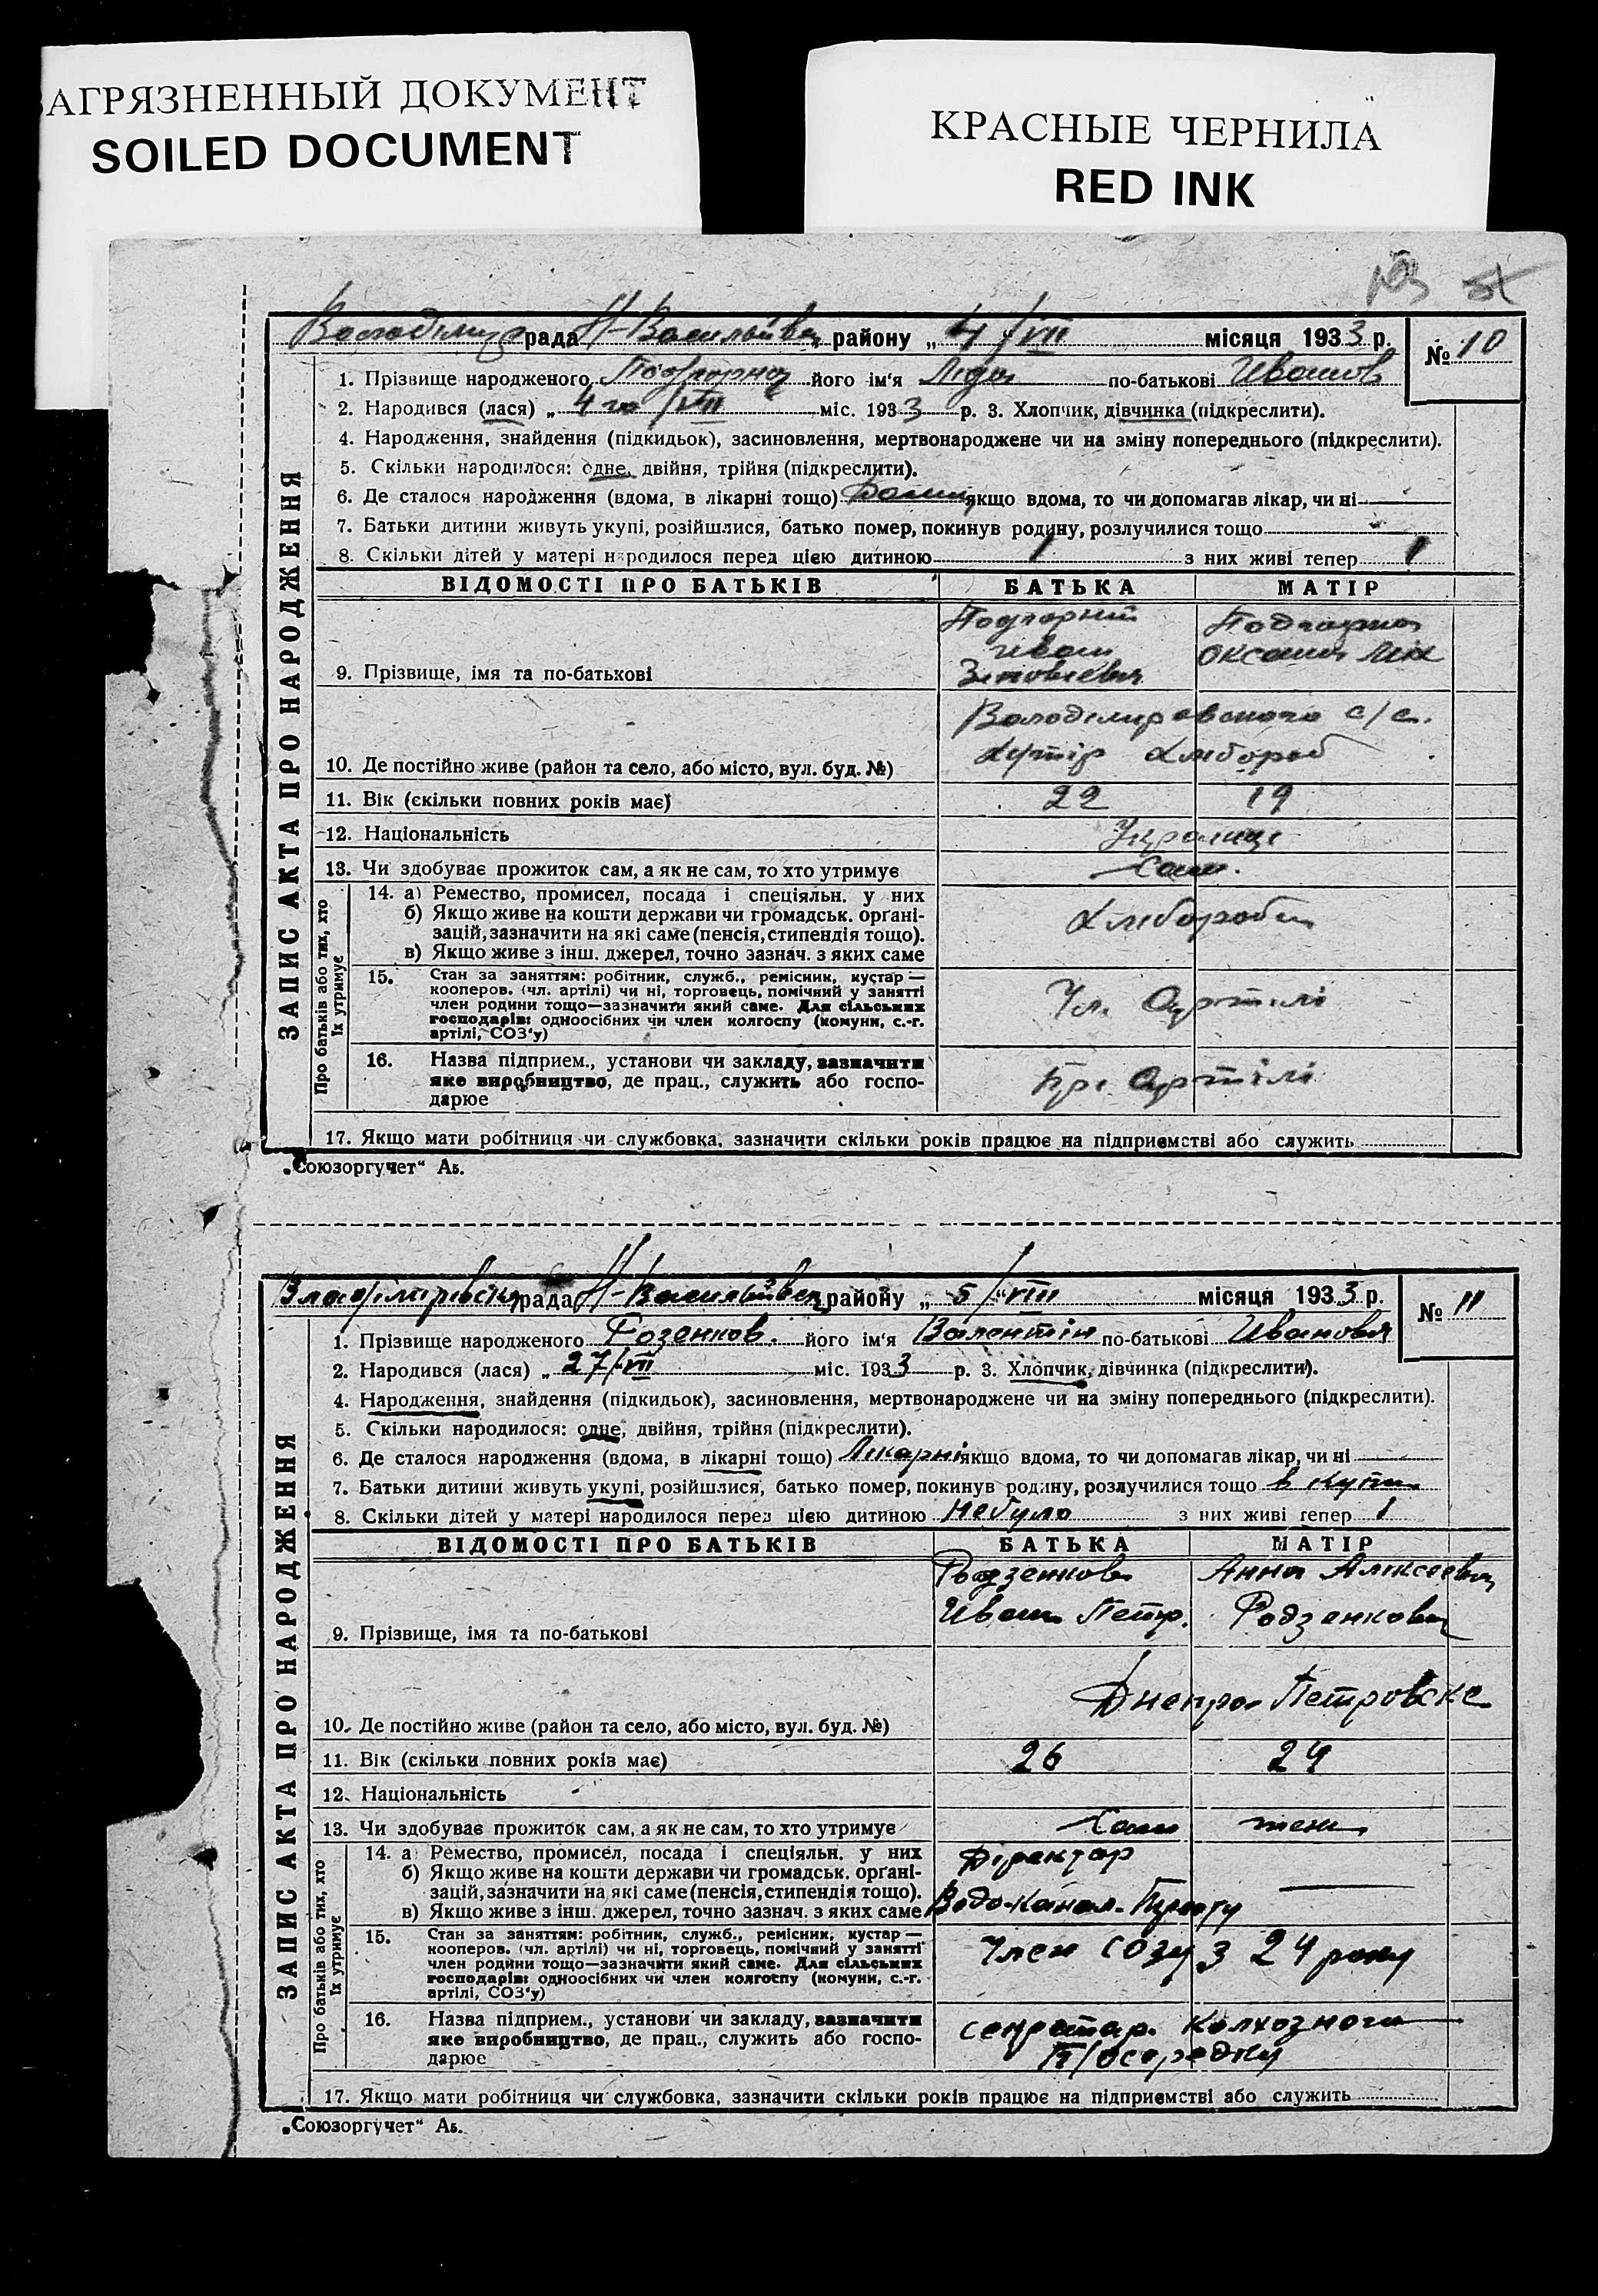 ЗАГРЯЗНЕННЫЙ ДОКУМЕНТ
SOILED DOCUMENT
КРАСНЫЕ ЧЕРНИЛА
RED INK
рада Н-Васильївск району „ 4 “ /VII місяця 1933 р. № 10
ЗАПИС АКТА ПРО НАРОДЖЕННЯ
1. Прізвище народженого Подгорна його ім‘я Ліда по-батькові Иванов
2. Народився (лася) „ 4 го /VII міс. 1933 р. 3. Хлопчик, дівчинка (підкреслити).
4. Народження, знайдення (підкидьок), засиновлення, мертвонароджене чи на зміну попереднього (підкреслити).
5. Скільки народилося: одне, двійня, трійня (підкреслити).
6. Де сталося народження (вдома, в лікарні тощо) якщо вдома, то чи допомагав лікар, чи ні
7. Батьки дитини живуть укупі, розійшлися, батько помер, покинув родину, розлучилися тощо
8. Скільки дітей у матері народилося перед цією дитиною 1 з них живі тепер 1
ВІДОМОСТІ ПРО БАТЬКІВ БАТЬКА МАТІР
Подгорний Подгорна
Иван Оксана
9. Прізвище, імя та по-батькові
Володімировського с/с.
хутір Хлібороб
10. Де постійно живе (район та село, або місто, вул. буд. №)
11. Вік (скільки повних років має) 22 19
12. Національність Українці
13. Чи здобуває прожиток сам, а як не сам, то хто утримує Сам.
Про батьків або тих, хто їх утримує
14. а) Ремество, промисел, посада і спеціяльн. у них
б) Якщо живе на кошти держави чи громадськ. орґані-
зацій, зазначити на які саме (пенсія, стипендія тощо).
в) Якщо живе з інш. джерел, точно зазнач. з яких саме
Хлібороби
15. Стан за заняттям: робітник, служб., ремісник, кустар —
кооперов. (чл. артілі) чи ні, торговець, помічний у занятті
член родини тощо—зазначити який саме. Для сільських
господарів: одноосібних чи член колгоспу (комуни, с.-г.
артілі, СОЗ‘у)
Чл. Артілі
16. Назва підприєм., установи чи закладу, зазначити
яке виробництво, де прац., служить або госпо-
дарює
Артілі
17. Якщо мати робітниця чи службовка, зазначити скільки років працює на підприємстві або служить
„Союзоргучет“ Аь.
рада Н-Васильївск району „ 5 “ /VIII місяця 1933 р. № 11
ЗАПИС АКТА ПРО НАРОДЖЕННЯ
1. Прізвище народженого його ім‘я Валентін по-батькові Иванович
2. Народився (лася) „ 27/VII міс. 1933 р. 3. Хлопчик, дівчинка (підкреслити).
4. Народження, знайдення (підкидьок), засиновлення, мертвонароджене чи на зміну попереднього (підкреслити).
5. Скільки народилося: одне, двійня, трійня (підкреслити).
6. Де сталося народження (вдома, в лікарні тощо) Лікарні якщо вдома, то чи допомагав лікар, чи ні
7. Батьки дитини живуть укупі, розійшлися, батько помер, покинув родину, розлучилися тощо в купи
8. Скільки дітей у матері народилося перед цією дитиною Небуло з них живі тепер 1
ВІДОМОСТІ ПРО БАТЬКІВ БАТЬКА МАТІР
Родзенков Анна Алксеевна
Иван Петр. Родзенкова
9. Прізвище, імя та по-батькові
Днепро Петровске
10. Де постійно живе (район та село, або місто, вул. буд. №)
11. Вік (скільки повних років має) 26 24
12. Національність
13. Чи здобуває прожиток сам, а як не сам, то хто утримує Сам теж
Про батьків або тих, хто їх утримує
14. а) Ремество, промисел, посада і спеціяльн. у них
б) Якщо живе на кошти держави чи громадськ. орґані-
зацій, зазначити на які саме (пенсія, стипендія тощо).
в) Якщо живе з інш. джерел, точно зазнач. з яких саме
Діректор
Водо-Канал-Тресту
15. Стан за заняттям: робітник, служб., ремісник, кустар —
кооперов. (чл. артілі) чи ні, торговець, помічний у занятті
член родини тощо—зазначити який саме. Для сільських
господарів: одноосібних чи член колгоспу (комуни, с.-г.
артілі, СОЗ‘у)
Член СОЗу з 24 року
16. Назва підприєм., установи чи закладу, зазначити
яке виробництво, де прац., служить або госпо-
дарює
секретар. Колхозного
П/осередку
17. Якщо мати робітниця чи службовка, зазначити скільки років працює на підприємстві або служить
„Союзоргучет“ Аь.